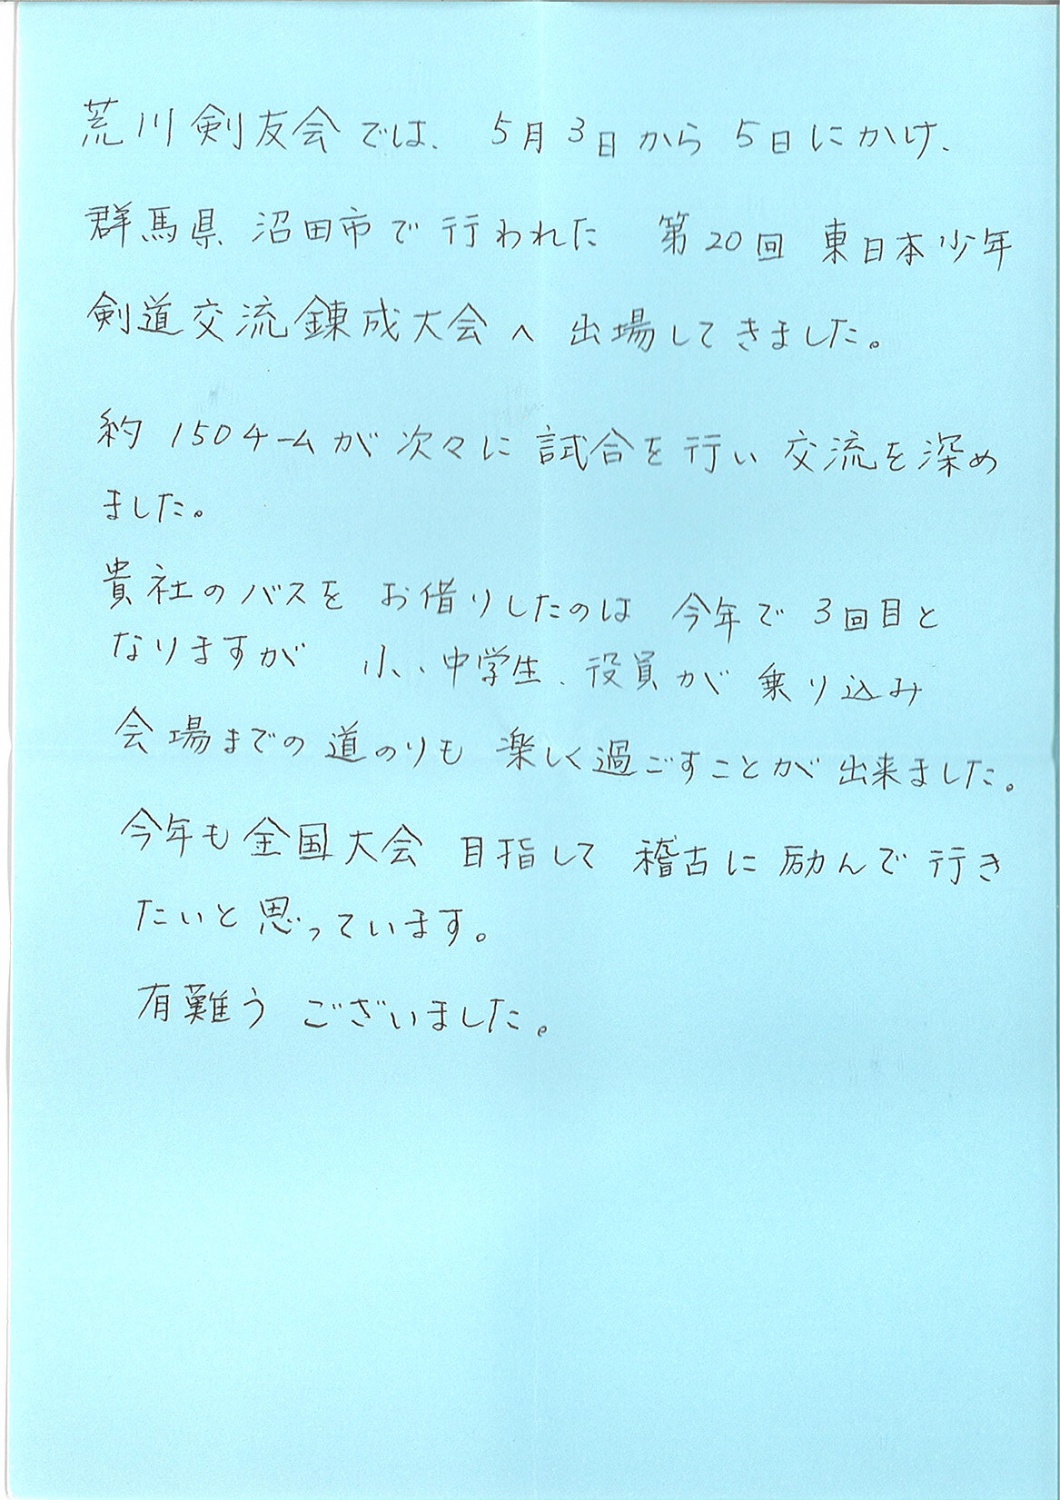 荒川剣友会では、5月3日から5日にかけ、
群馬県沼田市で行われた 第20回 東日本少年
剣道交流錬成大会へ 出場してきました。
約150チームが次々に試合を行い交流を深め
ました。
貴社のバスを お借りしたのは 今年で 3回目と
なりますが 小、中学生、役員が乗り込み
会場までの道のりも 楽しく過ごすことが出来ました。
今年も全国大会 目指して 稽古に励んで行き
たいと思っています。
有難う ございました。